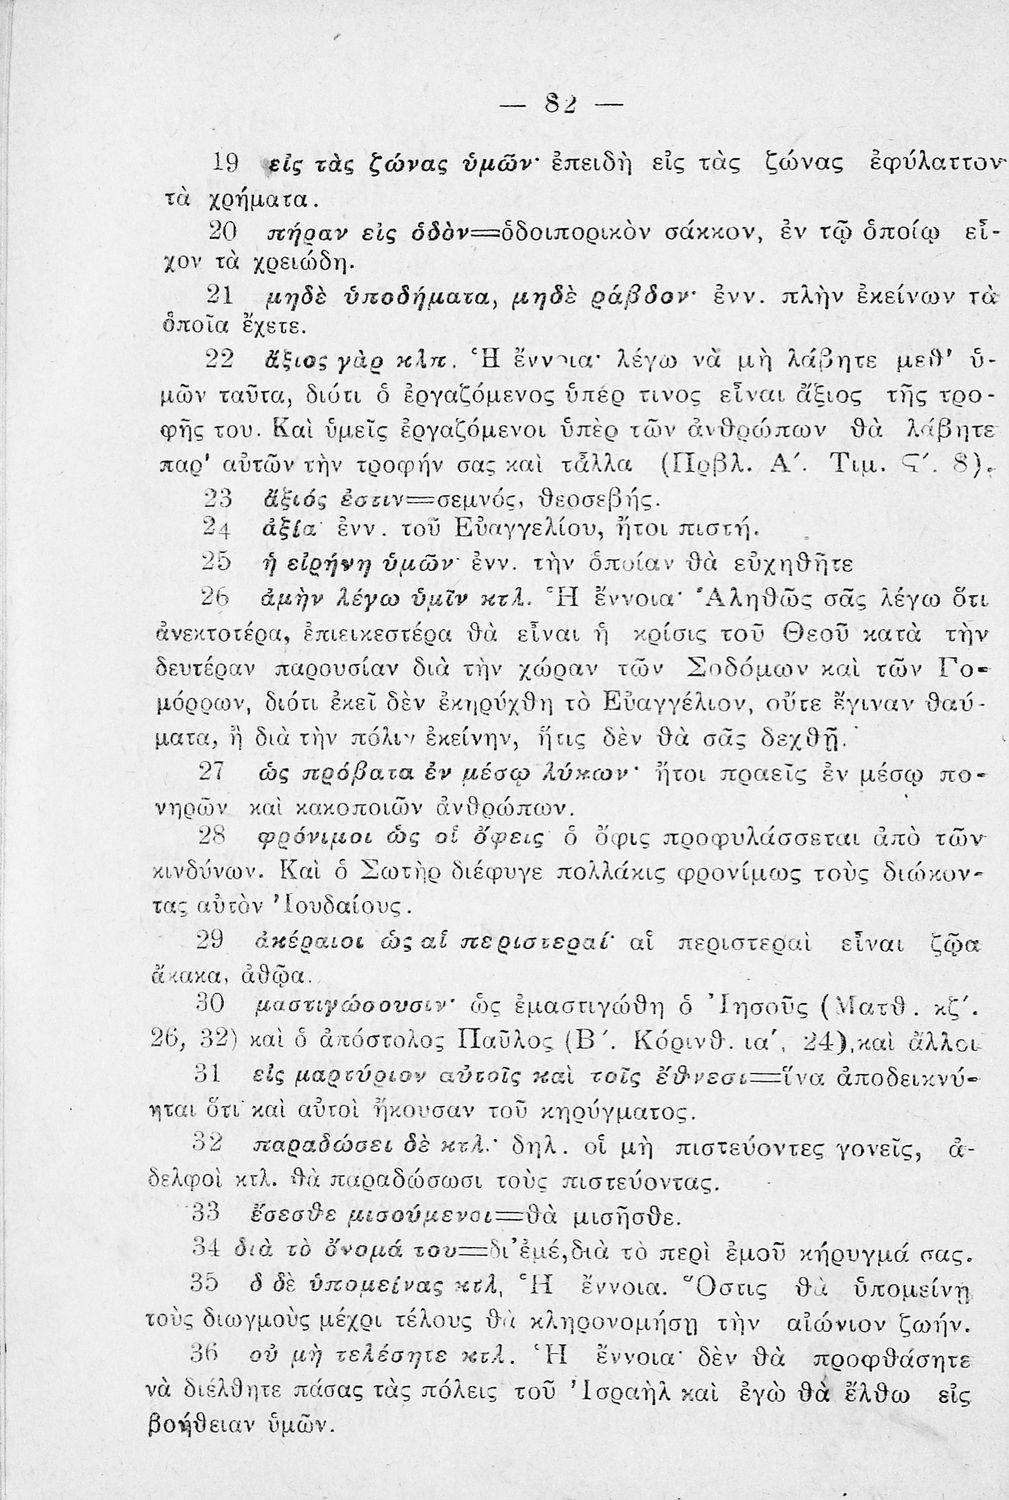 — 82 —
19 εἰς τὰς ζώνας ὑμῶν· ἐπειδὴ εἰς τὰς ζώνας ἐφύλαττον
τὰ χρήματα.
20 πήραν εἰς ὁδὸν=ὁδοιπορικὸν σάκκον, ἐν τῷ ὁποίῳ εἶ-
χον τὰ χρειώδη.
21 μηδὲ ὑποδήματα, μηδὲ ράβδον· ἐνν. πλὴν ἐκείνων τὰ
ὁποῖα ἔχετε.
22 ἄξιος γὰρ κλπ. Ἡ ἔννοια· λέγω νὰ μὴ λάβητε μεθ' ὑ-
μῶν ταῦτα, διότι ὁ ἐργαζόμενος ὑπέρ τινος εἶναι ἄξιος τῆς τρο-
φῆς του. Καὶ ὑμεῖς ἐργαζόμενοι ὑπὲρ τῶν ἀνθρώπων θὰ λάβητε
παρ' αὐτῶν τὴν τροφήν σας καὶ τἆλλα (Πρβλ. Α΄. Τιμ. Ϛ΄. 8).
23 ἄξιός ἐστιν=σεμνός, θεοσεβής.
24 ἀξία· ἐνν. τοῦ Εὐαγγελίου, ἤτοι πιστή.
25 ἡ εἰρήνη ὑμῶν· ἐνν. τὴν ὁποίαν θὰ εὐχηθῆτε
26 ἀμὴν λέγω ὑμῖν κτλ. Ἡ ἔννοια· Ἀληθῶς σᾶς λέγω ὅτι
ἀνεκτοτέρα, ἐπιεικεστέρα θὰ εἶναι ἡ κρίσις τοῦ Θεοῦ κατὰ τὴν
δευτέραν παρουσίαν διὰ τὴν χώραν τῶν Σοδόμων καὶ τῶν Γο-
μόρρων, διότι ἐκεῖ δὲν ἐκηρύχθη τὸ Εὐαγγέλιον, οὔτε ἔγιναν θαύ-
ματα, ἢ διὰ τὴν πόλιν ἐκείνην, ἥτις δὲν θὰ σᾶς δεχθῇ.
27 ὡς πρόβατα ἐν μέσῳ λύκων· ἤτοι πραεῖς ἐν μέσῳ πο-
νηρῶν καὶ κακοποιῶν ἀνθρώπων.
28 φρόνιμοι ὡς οἱ ὄφεις· ὁ ὄφις προφυλάσσεται ἀπὸ τῶν
κινδύνων. Καὶ ὁ Σωτὴρ διέφυγε πολλάκις φρονίμως τοὺς διώκον-
τας αὐτὸν Ἰουδαίους.
29 ἀκέραιοι ὡς αἱ περιστεραί· αἱ περιστεραὶ εἶναι ζῷα
ἄκακα, ἀθῷα.
30 μαστιγώσουσιν· ὡς ἐμαστιγώθη ὁ Ἰησοῦς (Ματθ. κζ΄.
26, 32) καὶ ὁ ἀπόστολος Παῦλος (Β΄. Κόρινθ. ια΄, 24),καὶ ἄλλοι
31 εἰς μαρτύριον αὐτοῖς καὶ τοῖς ἔθνεσι=ἵνα ἀποδεικνύ-
ηται ὅτι καὶ αὐτοὶ ἤκουσαν τοῦ κηρύγματος.
32 παραδώσει δὲ κτλ.· δηλ. οἱ μὴ πιστεύοντες γονεῖς, ἀ-
δελφοὶ κτλ. θὰ παραδώσωσι τοὺς πιστεύοντας.
33 ἔσεσθε μισούμενοι=θὰ μισῆσθε.
34 διὰ τὸ ὄνομά του=δι'ἐμέ,διὰ τὸ περὶ ἐμοῦ κήρυγμά σας.
35 ὁ δὲ ὑπομείνας κτλ, Ἡ ἔννοια. Ὅστις θὰ ὑπομείνῃ
τοὺς διωγμοὺς μέχρι τέλους θὰ κληρονομήσῃ τὴν αἰώνιον ζωήν.
36 οὐ μὴ τελέσητε κτλ. Ἡ ἔννοια· δὲν θὰ προφθάσητε
νὰ διέλθητε πάσας τὰς πόλεις τοῦ Ἰσραὴλ καὶ ἐγὼ θὰ ἔλθω εἰς
βοήθειαν ὑμῶν.